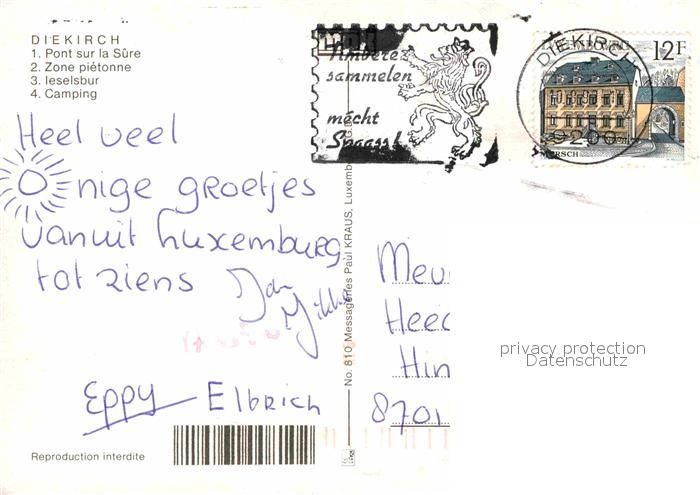 DIEKIRCH
1. Pont sur la Sûre
2. Zone piétonne
3. Ieselsbur
4. Camping
Timberen
sammelen
mécht
Spaass!
DIEKIRCH
9200
12F
MERSCH
Heel veel
O nige groetjes
vanuit Luxemburg
tot ziens
Jan
Eppy Elbrich
No. 810 Messageries Paul KRAUS, Luxemb
Meu
Heec
Hin
8701
privacy protection
Datenschutz
Reproduction interdite